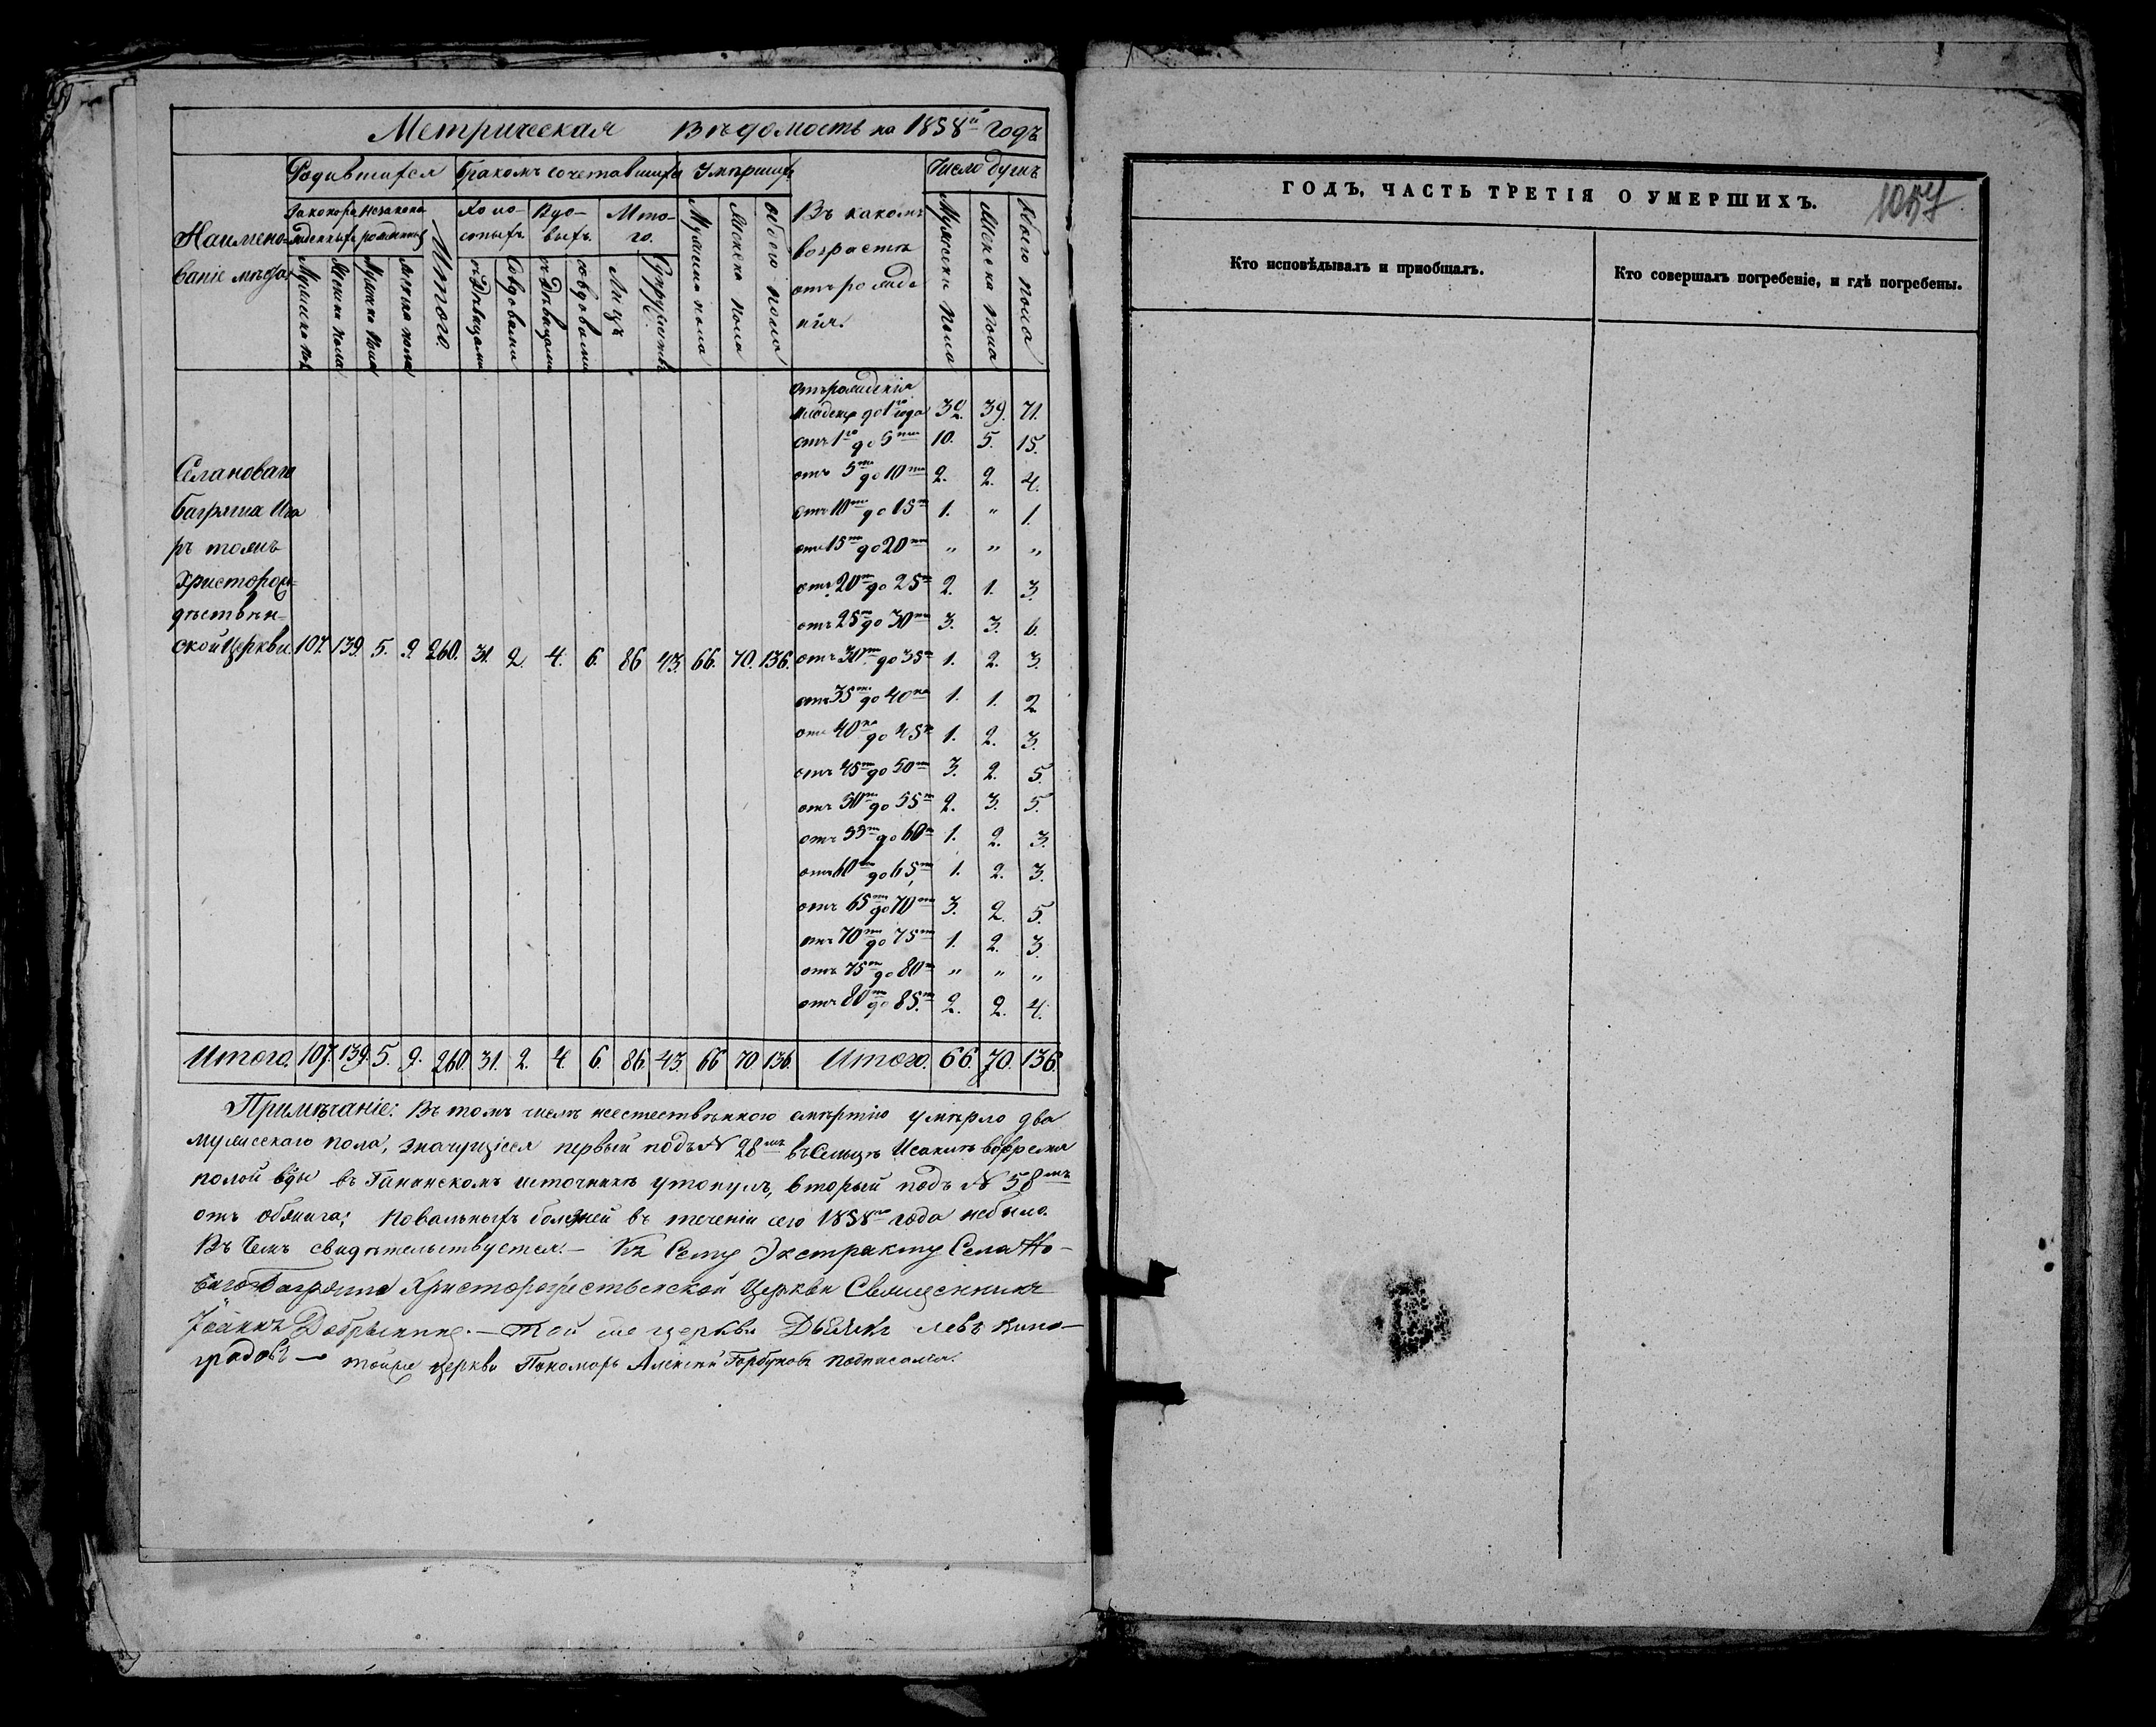 Метрическая Вѣдомость на 1858й Годъ
Наимено-
ваніе мѣста
Родившихся
Бракомъ сочетавшихся
Умершихъ
Въ какомъ
возрастѣ
отъ рожде
нія.
Число душъ
Законоро
жденныхъ
Незаконо
рожденныхъ
Итого.
Холо-
стыхъ
Вдо-
выхъ.
Ито-
го.
Мужска пола
Женска пола
Мужска пола
Женска пола
съ Дѣвицами
Со вдовами
съ Дѣвицами
со вдовами
Лицъ
Супружествъ
Мужеска пола
Женска пола
обоего пола
Мужеска пола
Женска пола
обоего пола
отъ рожденія
младенц до 1го года 32. 39. 71.
отъ 1го до 5ти 10. 5. 15.
отъ 5ти до 10ти 2. 2. 4.
отъ 10ти до 15ти 1. " 1.
отъ 15ти до 20ти " " "
отъ 20ти до 25ти 2. 1. 3.
отъ 25ти до 30ти 3. 3. 6.
отъ 30ти до 35ти 1. 2. 3.
отъ 35ти до 40ка 1. 1. 2
отъ 40ка до 45ти 1. 2. 3.
отъ 45ти до 50ти 3. 2. 5.
отъ 50ти до 55ти 2. 3. 5.
отъ 55ти до 60ти 1. 2. 3.
отъ 60ти до 65ти 1. 2. 3.
отъ 65ти до 70ти 3. 2. 5.
отъ 70ти до 75ти 1. 2. 3.
отъ 75ти до 80ти " " "
отъ 80ти до 85ти 2. 2. 4.
Села Новаго
Багряша
Христорож-
дественской Церкви 107. 139. 5. 9. 260. 31. 2. 4. 6. 86 43. 66. 70. 136.
Итого. 107. 139. 5. 9. 260. 31. 2. 4. 6. 86. 43. 66 70. 136. Итого. 66. 70. 136.
Примѣчаніе: Въ томъ числѣ неестественною смертію умерло два
мужескаго пола, значущіеся первый подъ № 28мъ въ Сельцѣ во время
полой воды въ источникѣ утонулъ, вторый подъ № 58мъ
отъ обжига; Повальныхъ болезней въ теченіи сего 1858го года небыло.
Въ Чемъ свидѣтельствуется.— Къ Сему Экстракту Села Но-
ваго Багряша Христорождественской Церкви Священникъ
Іоаннъ Добрынинъ.— Той же церкви Дьячекъ Левъ Вино-
градовъ — тойже Церкви Пономарь Алексѣй Горбуновъ подписался.
1057
ГОДЪ, ЧАСТЬ ТРЕТІЯ О УМЕРШИХЪ.
Кто исповѣдывалъ и пріобщалъ.
Кто совершалъ погребеніе, и гдѣ погребены.